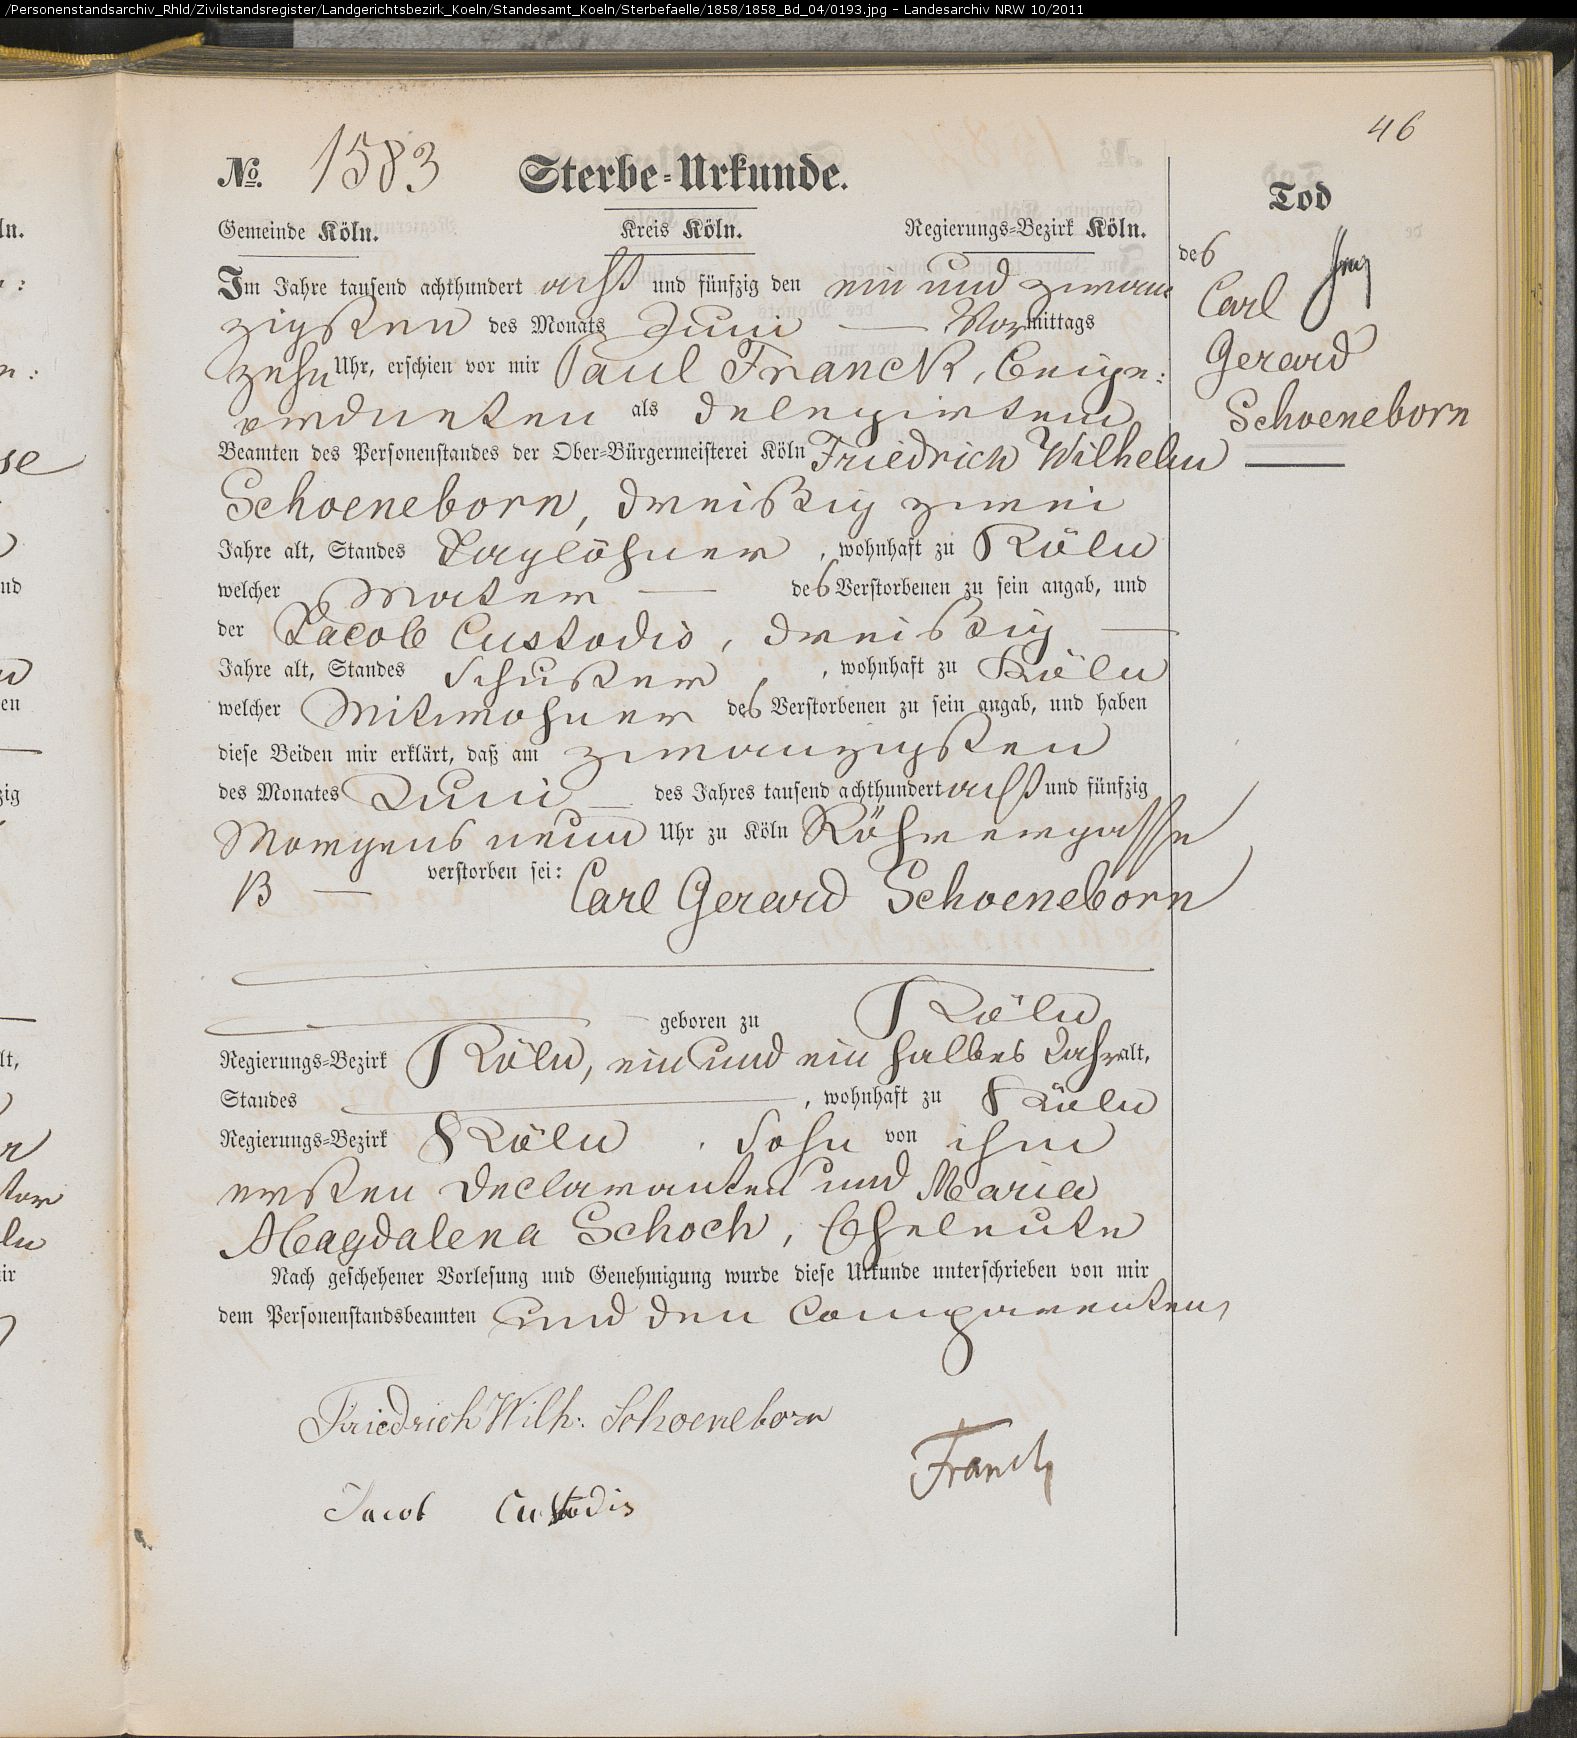 /Personenstandsarchiv_Rhld/Zivilstandsregister/Landgerichtsbezirk_Koeln/Standesamt_Koeln/Sterbefaelle/1858/1858_Bd_04/0193.jpg - Landesarchiv NRW 10/2011
46
No. 1583 Sterbe-Urkunde.
Gemeinde Köln. Kreis Köln. Regierungs-Bezirk Köln.
Im Jahre tausend achthundert acht und fünfzig den ein und zwan
zigsten des Monats Juni Vormittags
zehn Uhr, erschien vor mir Paul Franck, Beige:
ordneten als delegirtem
Beamten des Personenstandes der Ober-Bürgermeisterei Köln Friedrich Wilhelm
Schoeneborn, dreißig zwei
Jahre alt, Standes Taglöhner, wohnhaft zu Köln
welcher Vater des Verstorbenen zu sein angab, und
der Jacob Custodis, dreißig
Jahre alt, Standes Schuster, wohnhaft zu Köln
welcher Mitwohner des Verstorbenen zu sein angab, und haben
diese Beiden mir erklärt, daß am zwanzigsten
des Monates Juni des Jahres tausend achthundert acht und fünfzig
Morgens neun Uhr zu Köln Röhrergasse
13 verstorben sei: Carl Gerard Schoeneborn
geboren zu Köln
Regierungs-Bezirk Köln, ein und ein halbes Jahr alt,
Standes , wohnhaft zu Köln
Regierungs-Bezirk Köln. Sohn von ihm
ersten Declaranten und Maria
Magdalena Schoch, Eheleute
Nach geschehener Vorlesung und Genehmigung wurde diese Urkunde unterschrieben von mir
dem Personenstandsbeamten und den Comparenten,
Friedrich Wilh: Schoeneborn
Franck
Jacob Custodis
Tod
des
Carl
Gerard
Schoeneborn